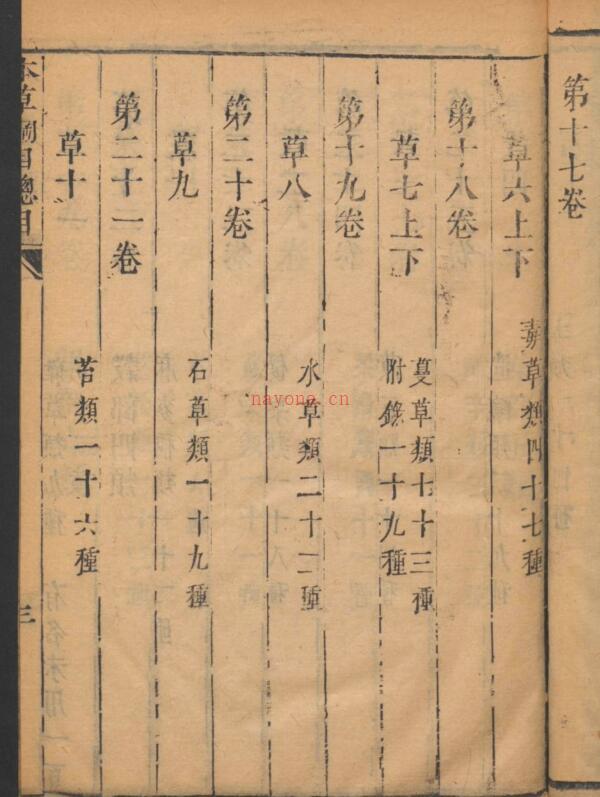 第十七卷
草六上下 毒草類四十七種
第十八卷
草七上下 蔓草類七十三種
附錄一十九種
第十九卷
草八 水草類二十二種
第二十卷
草九 石草類一十九種
第二十一卷
草十 苔類一十六種
本草綱目總目
三
nayona.cn